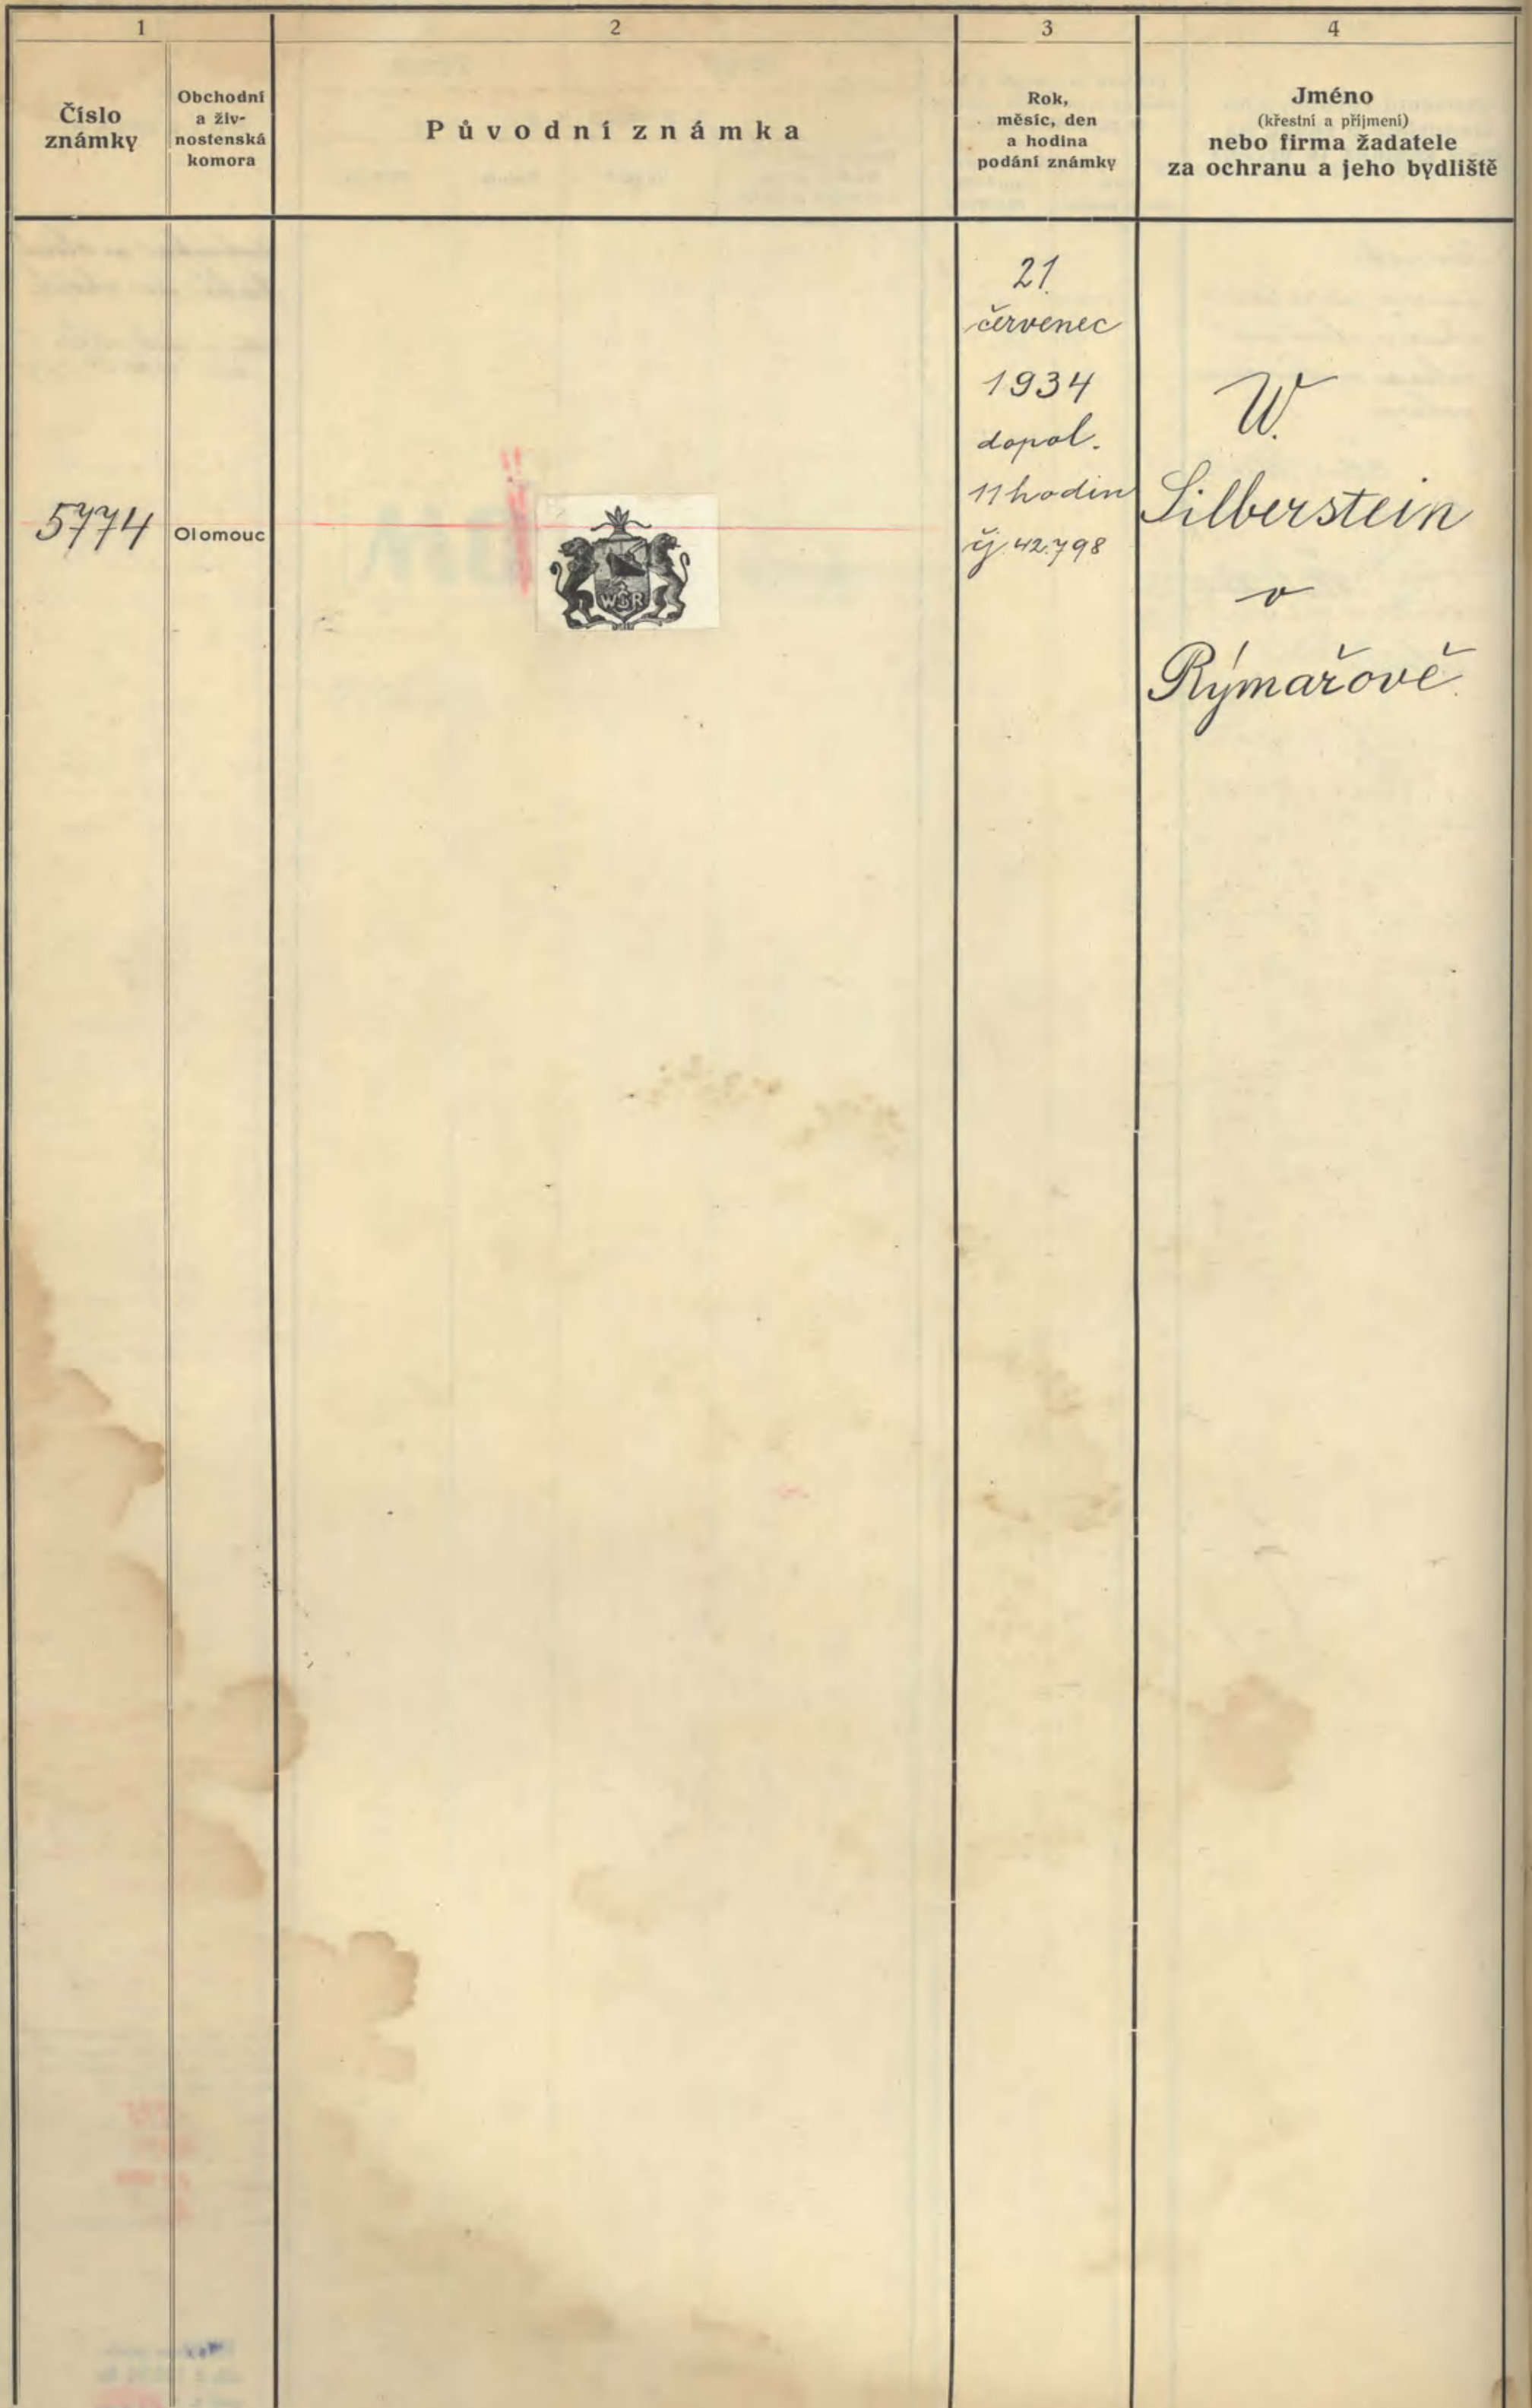 1
2
3
4
Číslo
známky
Obchodní
a živ-
nostenská
komora
Původní známka
Rok,
měsíc, den
a hodina
podání známky
Jméno
(křestní a příjmení)
nebo firma žadatele
za ochranu a jeho bydliště
5774
Olomouc
WSR
21.
červenec
1934
dopol.
11 hodin
čj. 42.798
W.
Silberstein
v
Rýmařově.